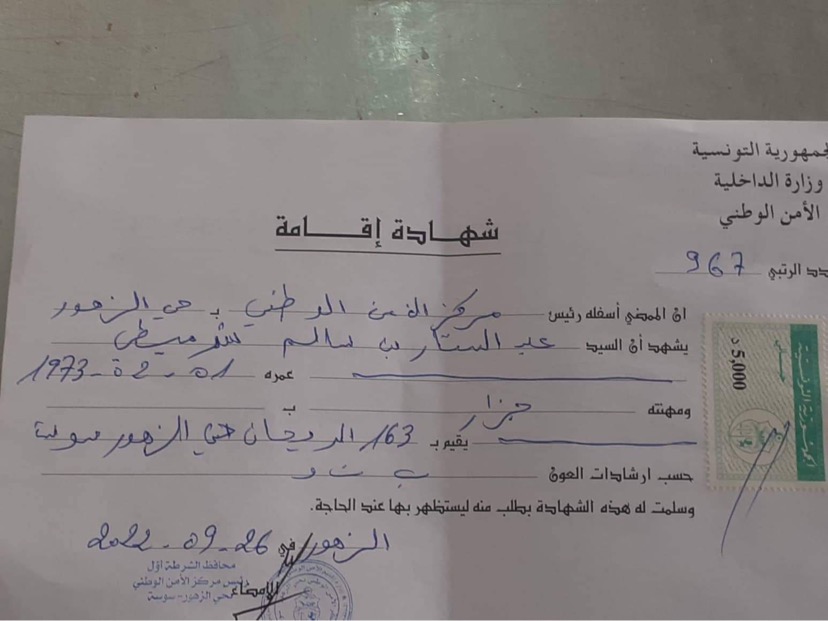 جمهورية التونسية
وزارة الداخلية
الأمن الوطني
شهادة إقامة
دد الرتبي 967
ان الممضي أسفله رئيس مركز الامن الوطني بـ حي الزهور
يشهد أن السيد عبد الستار بن سالم
عمره 01-02-1973
ومهنته جزار ب
يقيم بـ 163 حي الزهور سوسة
حسب ارشادات العون
وسلمت له هذه الشهادة بطلب منه ليستظهر بها عند الحاجة.
الزهور في 26-09-2022
الإمضاء
محافظ الشرطة أول
رئيس مركز الأمن الوطني
حي الزهور - سوسة
5,000 د
الجمهورية التونسية